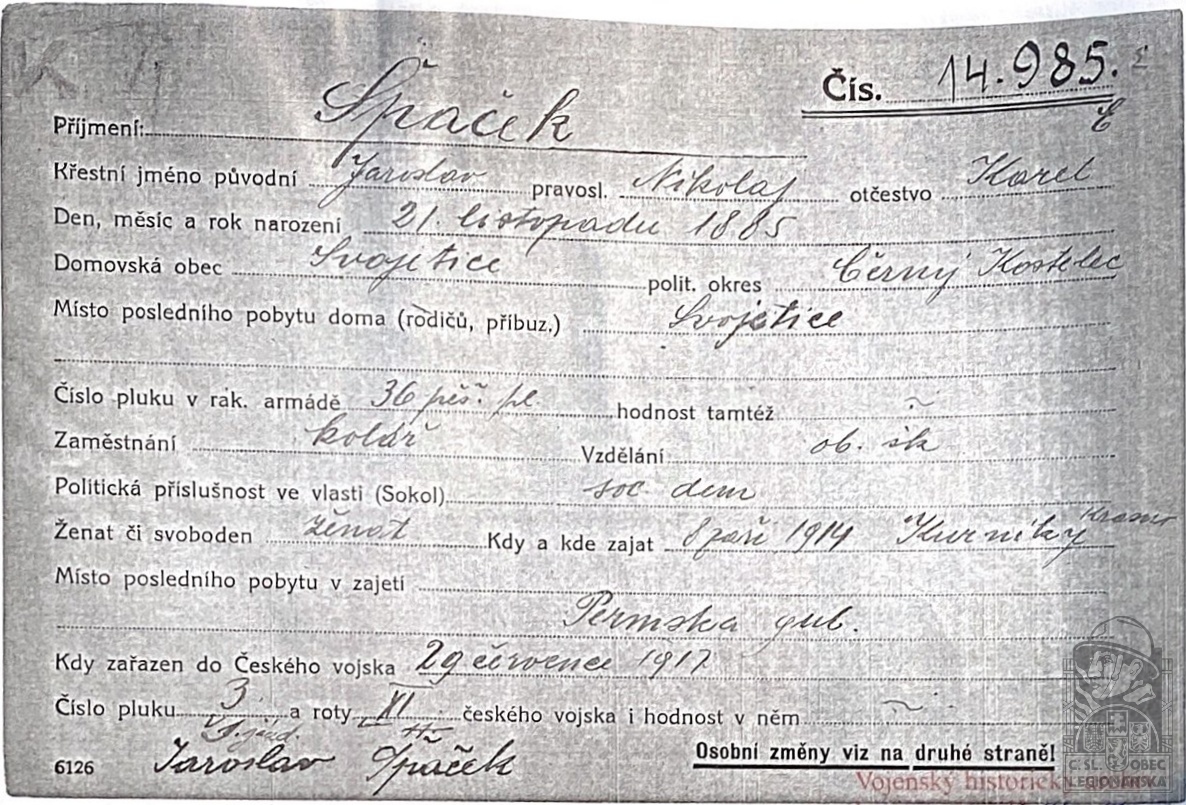 Čís. 14.985.
Příjmení: Špaček
Křestní jméno původní Jaroslav pravosl. Nikolaj otčestvo Karel
Den, měsíc a rok narození 21. listopadu 1885
Domovská obec Svojetice polit. okres Černý Kostelec
Místo posledního pobytu doma (rodičů, příbuz.) Svojetice
Číslo pluku v rak. armádě 36 pěš. pl hodnost tamtéž ~
Zaměstnání kolář Vzdělání ob. šk
Politická příslušnost ve vlasti (Sokol) soc. dem
Ženat či svoboden ženat Kdy a kde zajat 8 září 1914 Kurniky
Místo posledního pobytu v zajetí
Permska gub.
Kdy zařazen do Českého vojska 29 července 1917
Číslo pluku 3. a roty XI českého vojska i hodnost v něm ~
Jaroslav Špaček
Osobní změny viz na druhé straně!
6126
Č. SL. OBEC
LEGIONÁŘSKÁ
Vojenský historický